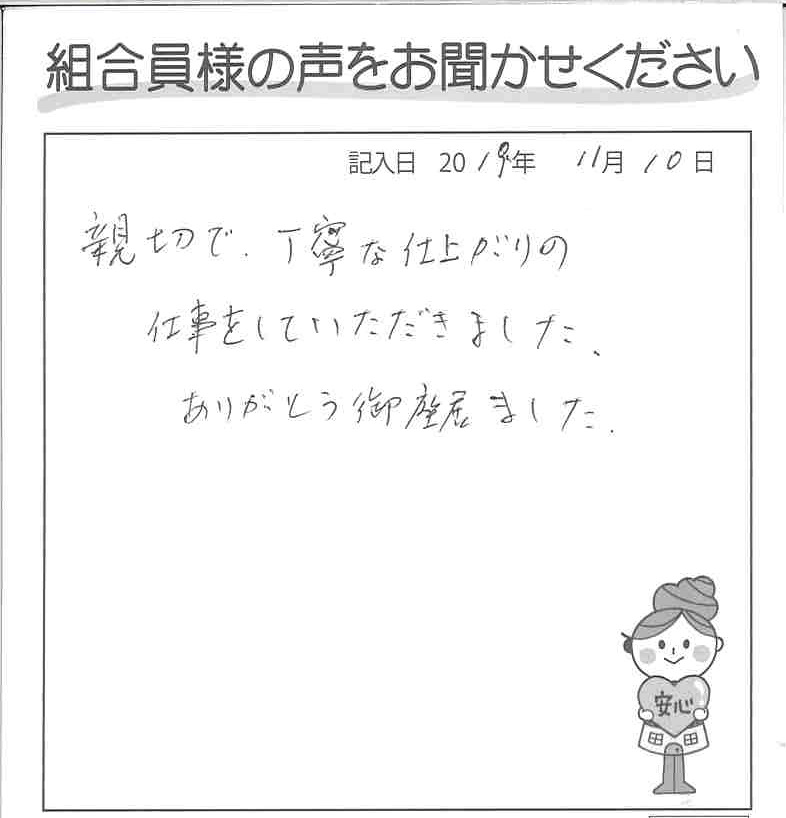 組合員様の声をお聞かせください
記入日 2019年 11月 10日
親切で、丁寧な仕上がりの
仕事をしていただきました、
ありがとう御座居ました.
安心